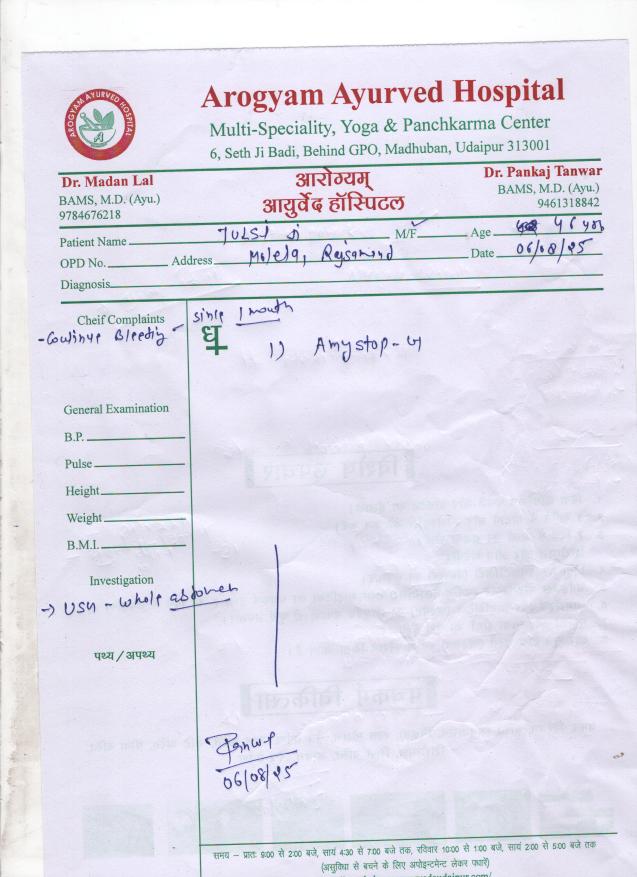 AROGYAM AYURVED HOSPITAL
Arogyam Ayurved Hospital
Multi-Speciality, Yoga & Panchkarma Center
6, Seth Ji Badi, Behind GPO, Madhuban, Udaipur 313001
Dr. Madan Lal
BAMS, M.D. (Ayu.)
9784676218
आरोग्यम्
आयुर्वेद हॉस्पिटल
Dr. Pankaj Tanwar
BAMS, M.D. (Ayu.)
9461318842
Patient Name TULSI ji M/F Age 46 yrs
OPD No. Address Molela, Rajsamand Date 06/08/25
Diagnosis
Cheif Complaints
- Continue Bleeding since 1 month
1) Amystop-G
General Examination
B.P.
Pulse
Height
Weight
B.M.I.
Investigation
→ USG - whole abdomen
पथ्य / अपथ्य
06/08/25
समय – प्रातः 9:00 से 2:00 बजे, सायं 4:30 से 7:00 बजे तक, रविवार 10:00 से 1:00 बजे, सायं 2:00 से 5:00 बजे तक
(असुविधा से बचने के लिए अपोइन्टमेन्ट लेकर पधारें)